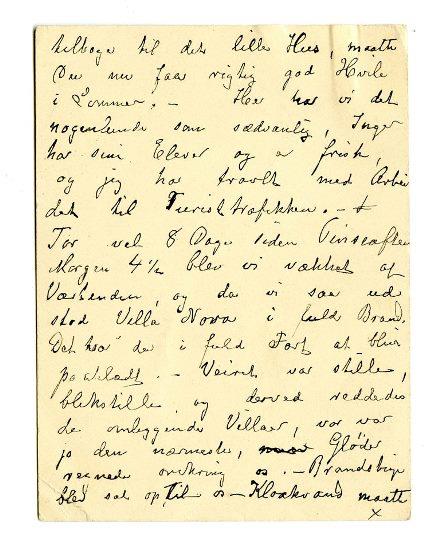 tilbage til det lille Hus, maatte
Du nu faar rigtig god Hvile
i Sommer. – Her har vi det
nogenlunde som sædvanlig, Inger
har sine Elever og er frisk,
og jeg har travlt med Arbei
det til Turisttrafikken. –
For vel 8 Dage siden Pinseaften
Morgen 4½ blev vi vækket af
og da vi saa ud
stod Villa Nova i fuld Brand.
der i fuld Fart at blive
– Veiret var stille,
blikstille og derved reddedes
de omliggende Villaer, vor var
jo den nærmeste, Gløder
regnede omkring os. – Brandslange
blev sat op til os – Kloakvand maatte
x